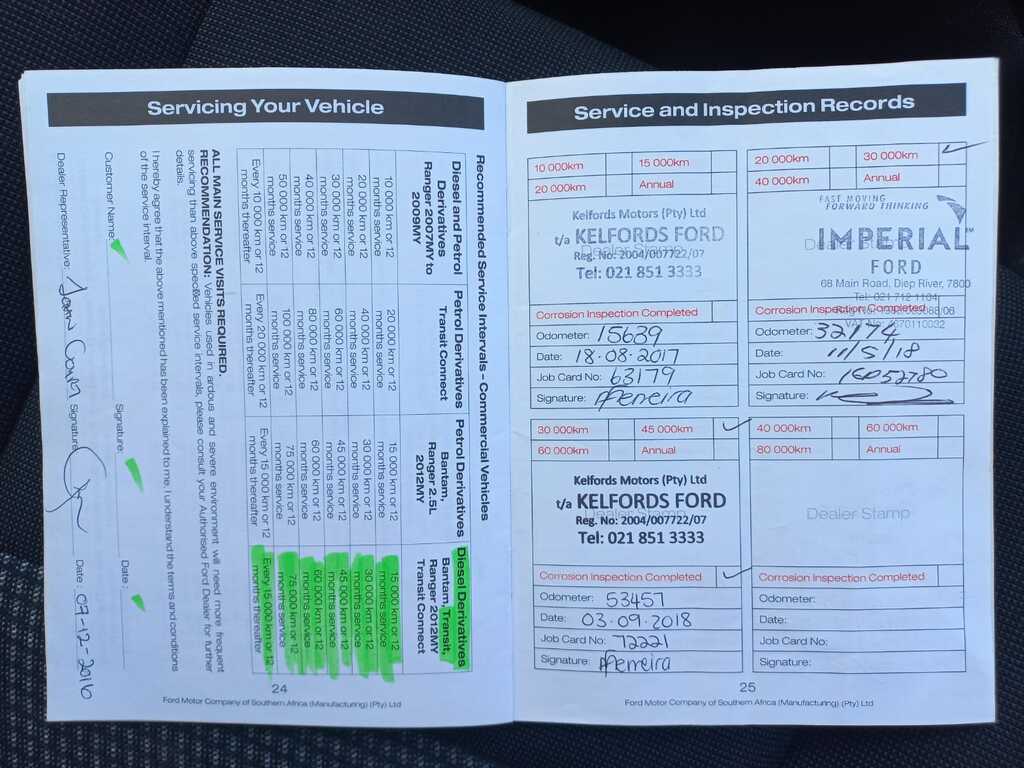 Servicing Your Vehicle
Recommended Service Intervals - Commercial Vehicles
Diesel and Petrol Derivatives Ranger 2007MY to 2009MY
Petrol Derivatives Transit Connect
Petrol Derivatives Bantam, Ranger 2.5L 2012MY
Diesel Derivatives Bantam, Transit, Ranger 2012MY Transit Connect
10 000 km or 12 months service
20 000 km or 12 months service
15 000 km or 12 months service
15 000 km or 12 months service
20 000 km or 12 months service
40 000 km or 12 months service
30 000 km or 12 months service
30 000 km or 12 months service
30 000 km or 12 months service
60 000 km or 12 months service
45 000 km or 12 months service
45 000 km or 12 months service
40 000 km or 12 months service
80 000 km or 12 months service
60 000 km or 12 months service
60 000 km or 12 months service
50 000 km or 12 months service
100 000 km or 12 months service
75 000 km or 12 months service
75 000 km or 12 months service
Every 10 000 km or 12 months thereafter
Every 20 000 km or 12 months thereafter
Every 15 000 km or 12 months thereafter
Every 15 000 km or 12 months thereafter
ALL MAIN SERVICE VISITS REQUIRED.
RECOMMENDATION: Vehicles used in ardous and severe environment will need more frequent
servicing than above specified service intervals, please consult your Authorised Ford Dealer for further
details.
I hereby agree that the above mentioned has been explained to me. I understand the terms and conditions
of the service interval.
Customer Name: Signature: Date:
Dealer Representative: Signature: Date: 07-12-2016
24
Ford Motor Company of Southern Africa (Manufacturing) (Pty) Ltd
Service and Inspection Records
10 000km 15 000km
20 000km Annual
Kelfords Motors (Pty) Ltd
t/a KELFORDS FORD
Dealer Stamp
Reg. No: 2004/007722/07
Tel: 021 851 3333
Corrosion Inspection Completed
Odometer: 15639
Date: 18-08-2017
Job Card No: 63179
Signature: AFerreira
20 000km 30 000km
40 000km Annual
FAST MOVING
FORWARD THINKING
IMPERIAL
FORD
68 Main Road, Diep River, 7800
Tel: 021 712 1104
Corrosion Inspection Completed
Odometer: 32174
Date: 11/5/18
Job Card No:
Signature:
30 000km 45 000km
60 000km Annual
Kelfords Motors (Pty) Ltd
t/a KELFORDS FORD
Dealer Stamp
Reg. No: 2004/007722/07
Tel: 021 851 3333
Corrosion Inspection Completed
Odometer: 53457
Date: 03-09-2018
Job Card No: 72221
Signature: AFerreira
40 000km 60 000km
80 000km Annual
Dealer Stamp
Corrosion Inspection Completed
Odometer:
Date:
Job Card No:
Signature:
25
Ford Motor Company of Southern Africa (Manufacturing) (Pty) Ltd